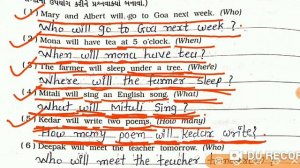 ઉપયોગ કરીને પ્રશ્નવાક્યો બનાવો.)
(1) Mary and Albert will go to Goa next week. (Who)
Who will go to Goa next week?
(2) Mona will have tea at 5 o'clock. (When)
When will mona have tea?
(3) The farmer will sleep under a tree. (Where)
Where will the farmer sleep?
(4) Mitali will sing an English song. (What)
What will Mitali Sing?
(5) Kedar will write two poems. (How many)
How many poem will kedar write?
(6) Deepak will meet the teacher tomorrow. (Who)
who will meet the teacher